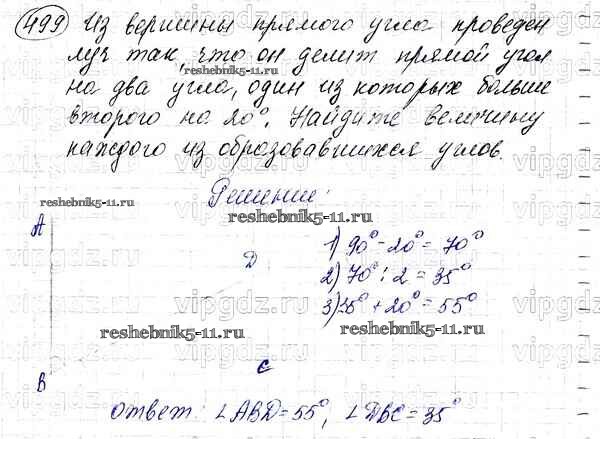 499 Из вершины прямого угла проведен
луч так, что он делит прямой угол
на два угла, один из которых больше
второго на 20°. Найдите величину
каждого из образовавшихся углов.
Решение:
1) 90° - 20° = 70°
2) 70° : 2 = 35°
3) 35° + 20° = 55°
A
D
B
C
ответ: ∠ABD = 55°, ∠DBC = 35°
reshebnik5-11.ru
reshebnik5-11.ru
reshebnik5-11.ru
reshebnik5-11.ru
reshebnik5-11.ru
vipgdz.ru